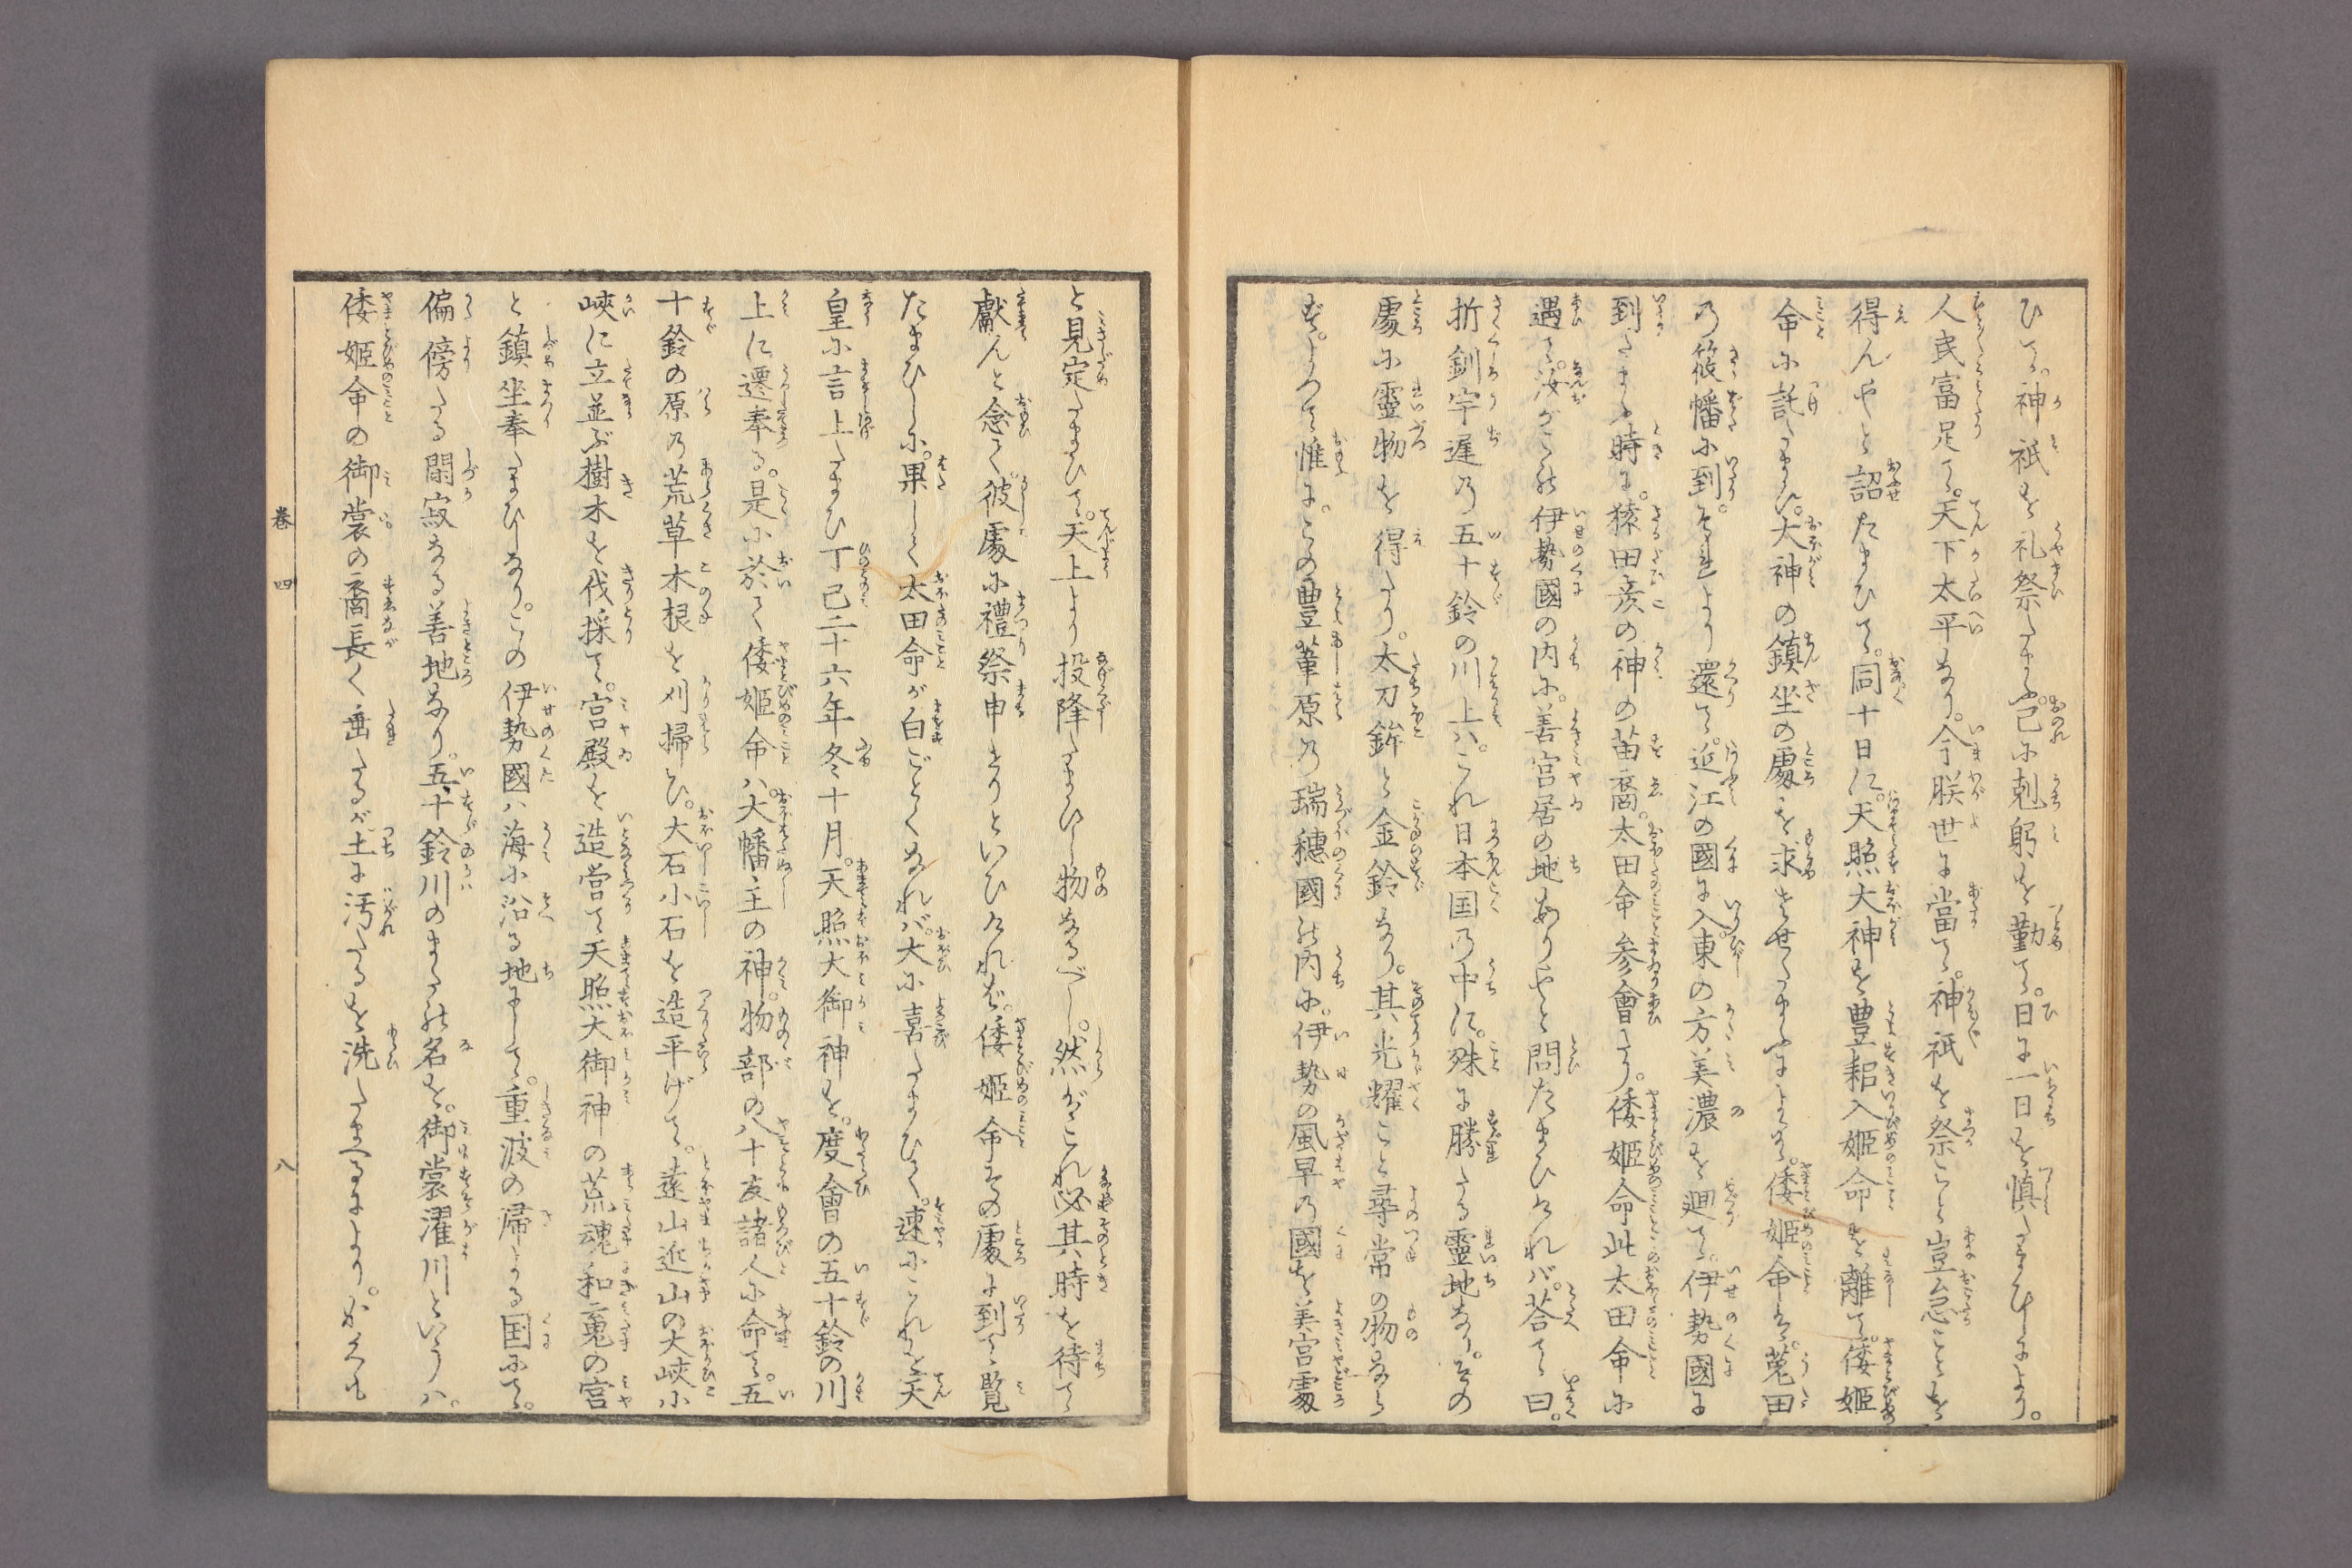 ひて。神祇を礼祭たまふ。己に剋躬を勤て。日に一日を慎たまひしより。
人民富足て。天下太平なり。今朕世に當て。神祇を祭こと豈怠ことを
得んやと詔たまひて。同十日に。天照大神を豊耜入姫命を離て。倭姫
命に託たまひ。大神の鎮坐の處を求させたまふによりて。倭姫命は。菟田
の筱幡に到。それより還て。近江の國に入。東の方美濃を廻て。伊勢國に
到たまふ時に。猿田彦の神の苗裔。太田命参會たり。倭姫命此太田命に
遇て。汝がこの伊勢國の内に。善宮居の地ありやと問たまひければ。荅て曰。
折釧宇遅の五十鈴の川上ハ。これ日本国の中に。殊に勝たる靈地なり。その
處に靈物を得たり。太刀鉾と金鈴なり。其光耀こと尋常の物なら
ず。よつて惟に。この豊葦原の瑞穂國の内に。伊勢の風早の國を美宮處
と見定たまひて。天上より投降たまひし物なるべし。然がこれ必其時を待て
獻んと念て彼處に禮祭申せりといひければ。倭姫命その處に到て覧
たまひしに。果して太田命が白ごとくなれバ。大に喜たまひて。速にこれを天
皇に言上たまひ丁巳二十六年冬十月。天照大御神を。度會の五十鈴の川
上に遷奉る。是に於て倭姫命ハ。大幡主の神。物部の八十友諸人に命て。五
十鈴の原の荒草木根を刈掃ひ。大石小石を造平げて。遠山近山の大峽小
峽に立並ぶ樹木を伐採て。宮殿を造営て天照大御神の荒魂和魂の宮
と鎮坐奉たまひしなり。この伊勢國ハ海に沿る地にして。重波の帰よる国にて。
偏傍たる閑寂なる善地なり。五十鈴川のまたの名を。御裳濯川というハ。
倭姫命の御裳の裔長く垂たるが土に汚たるを洗たまへるによりて。かくも
巻四
八